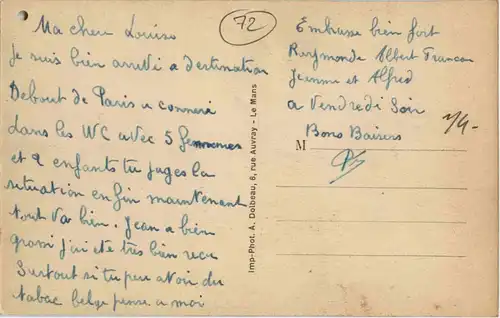 Ma cher Louise
je suis bien arrivé a destination
Debout de Paris a
dans les WC avec 5 femmes
et 2 enfants tu juges la
situation enfin maintenant
tout va bien. Jean a bien
grossi j'ai été très bien recu
Surtout si tu peu avoir du
tabac belge pense a moi
72
Imp-Phot. A. Dolbeau, 6, rue Auvray - Le Mans
Embrasse bien fort
Raymonde Albert
Jeanne et Alfred
a Vendredi Soir
Bons Baisers
M